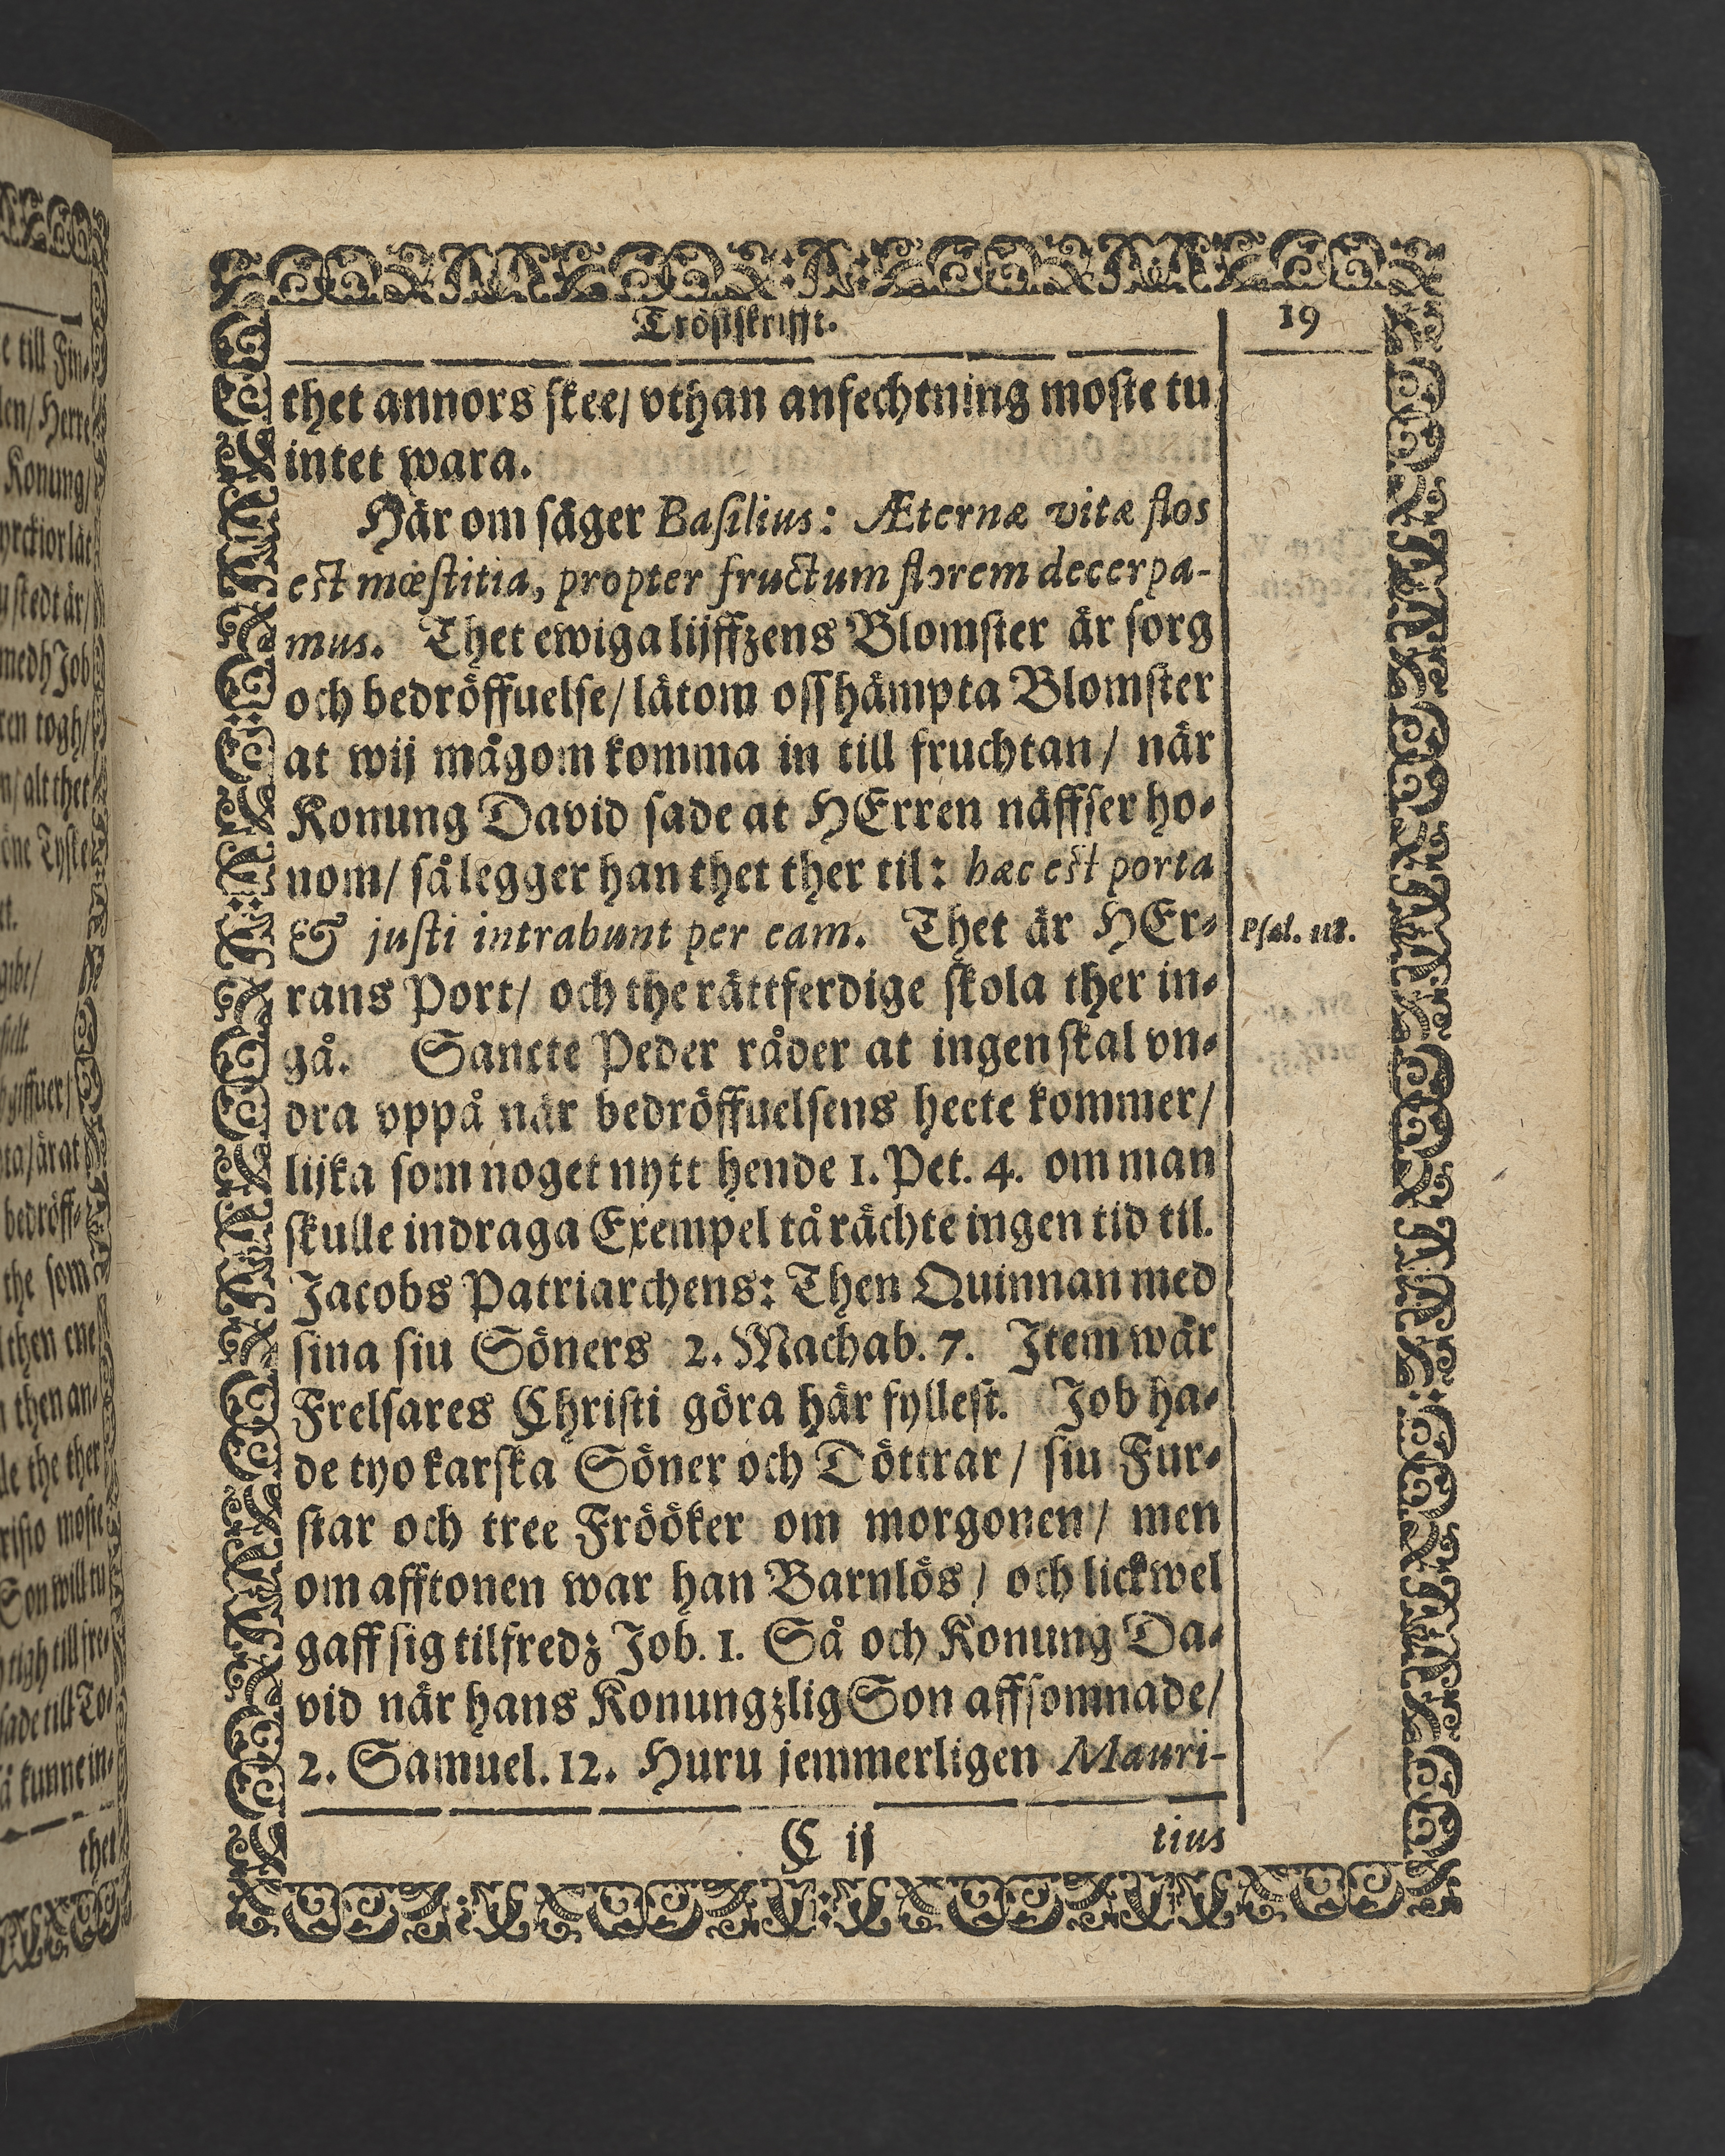 Tröstskrifft.
19
thet annors skee/ vthan anfechtning moste tu
intet wara.
Här om säger Basilius: Æternæ vitæ flos
est mœstitia, propter fructum florem decerpa-
mus. Thet ewiga lijffzens Blomster är sorg
och bedröffuelse/ låtom oss hämpta Blomster
at wij mågom komma in till fruchtan/ när
Konung David sade at HErren näffser ho-
nom/ så legger han thet ther til: hæc est porta
& justi intrabunt per eam. Thet är HEr-
Psal. 118.
rans Port/ och the rättferdige skola ther in-
gå. Sancte Peder råder at ingen skal vn-
dra vppå när bedröffuelsens hecte kommer/
lijka som noget nytt hende 1. Pet. 4. om man
skulle indraga Exempel tå rächte ingen tid til.
Jacobs Patriarchens: Then Quinnan med
sina siu Söners 2. Machab. 7. Item wår
Frelsares Christi göra här fyllest. Job ha-
de tyo karska Söner och Döttrar/ siu Fur-
star och tree Frööker om morgonen/ men
om afftonen war han Barnlös/ och lickwel
gaff sig tilfredz Job. 1. Så och Konung Da-
vid när hans Konungzlig Son affsomnade/
2. Samuel. 12. Huru jemmerligen Mauri-
C ij
tius
e till Fin-
len/ Herre
Konung/
yrckior lät
stedt är/
medh Job
ren togh/
n/ alt thet
öne Tyske
gibt/
giffuer/
ta/ är at
bedröff-
the som
then ene
then an-
le the ther
risto moste
Son will tu
tigh till fre-
sade till To-
å kunne in-
thet